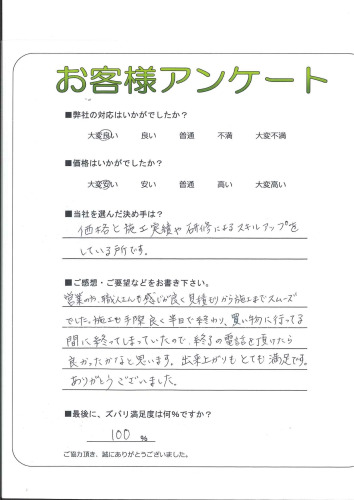 お客様アンケート
■弊社の対応はいかがでしたか？
大変良い 良い 普通 不満 大変不満
■価格はいかがでしたか？
大変安い 安い 普通 高い 大変高い
■当社を選んだ決め手は？
価格と施工実績や研修によるスキルアップを
している所です。
■ご感想・ご要望などをお書き下さい。
営業の方、職人さんも感じが良く見積もりから施工までスムーズ
でした。施工も手際良く半日で終わり、買い物に行ってる
間に終ってしまっていたので、終了の電話を頂けたら
良かったかなと思います。出来上がりもとても満足です。
ありがとうございました。
■最後に、ズバリ満足度は何%ですか？
100 %
ご協力頂き、誠にありがとうございました。